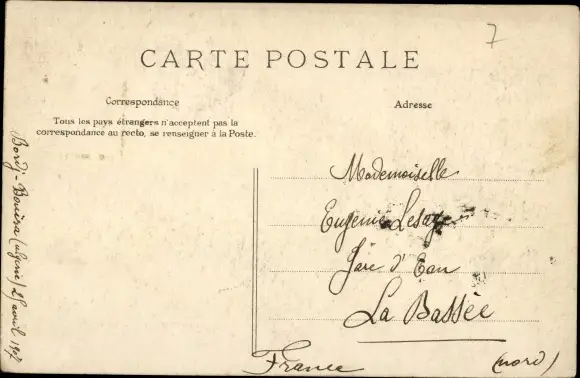 7
CARTE POSTALE
Correspondance
Tous les pays étrangers n'acceptent pas la
correspondance au recto, se renseigner à la Poste.
Adresse
Mademoiselle
Eugénie Lesage
Gare d'Eau
La Bassée
(nord)
France
Bordj Bouïra (Algérie) 25 avril 1907